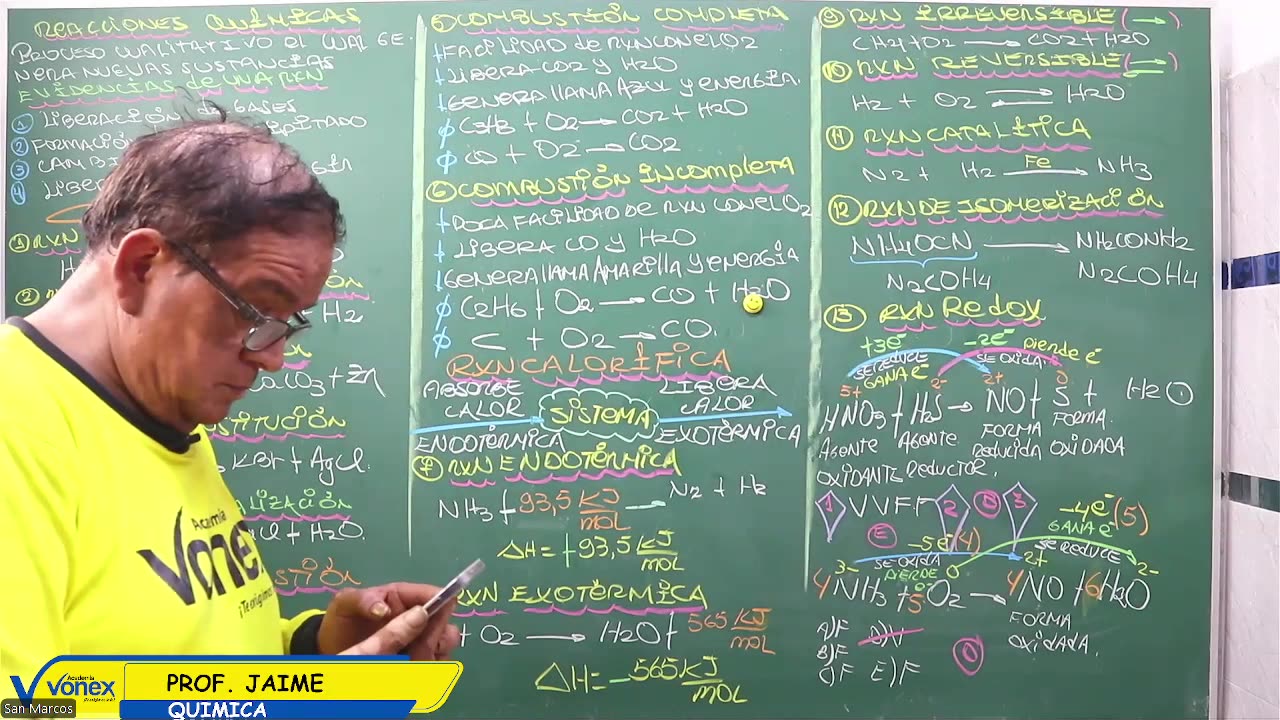 REACCIONES QUÍMICAS
PROCESO CUALITATIVO EL CUAL GE.
NERA NUEVAS SUSTANCIAS
EVIDENCIAS de UNA RXN
① LIBERACIÓN de GASES
② FORMACIÓN
③ CAMBI
④ LIBER
① RXN
②
H2
CaCO3 + Zn
KBr + AgCl.
+ H2O.
⑤ COMBUSTIÓN COMPLETA
+ FACILIDAD de RXN CON EL O2
+ LIBERA CO2 y H2O
+ GENERA llAMA AZUL y ENERGIA.
ϕ C3H8 + O2 → CO2 + H2O
ϕ CO + O2 → CO2
⑥ COMBUSTIÓN INCOMPLETA
+ POCA FACILIDAD DE RXN CON EL O2
+ LIBERA CO y H2O
+ GENERA llAMA AMARILLA y ENERGIA
ϕ C2H6 + O2 → CO + H2O
ϕ C + O2 → CO.
RXN CALORÍFICA
ABSORBE CALOR
SISTEMA
LIBERA CALOR
ENDOTÉRMICA
EXOTÉRMICA
⑦ RXN ENDOTÉRMICA
NH3 + 93,5 KJ/MOL → N2 + H2
ΔH = +93,5 KJ/MOL
RXN EXOTÉRMICA
+ O2 → H2O + 565 KJ/MOL
ΔH = -565 KJ/MOL
⑨ RXN IRREVERSIBLE (→)
CH4 + O2 → CO2 + H2O
⑩ RXN REVERSIBLE (⇌)
H2 + O2 ⇌ H2O
⑪ RXN CATALÍTICA
N2 + H2 Fe → NH3
⑫ RXN DE ISOMERIZACIÓN
NH4OCN → NH2CONH2
N2COH4 N2COH4
⑬ RXN Redox
+3e⁻ -2e⁻ pierde e⁻
SE REDUCE SE OXIDA.
GANA e⁻
5+ 2- 2+ 0
HNO3 + H2S → NO + S + H2O
FORMA FORMA
AGENTE AGENTE reducida OXIDADA
OXIDANTE REDUCTOR.
1 VVFF 2 E 3
-4e⁻ (5)
GANA e⁻
E -5e⁻ (4) SE REDUCE
SE OXIDA
PIERDE
3- 0 2+ 2-
4NH3 + 5O2 → 4NO + 6H2O
FORMA
OXIDADA.
A) F D) V
B) F
C) F E) F
Academia
Vonex
Academia
Vonex
PROF. JAIME
QUIMICA
San Marcos